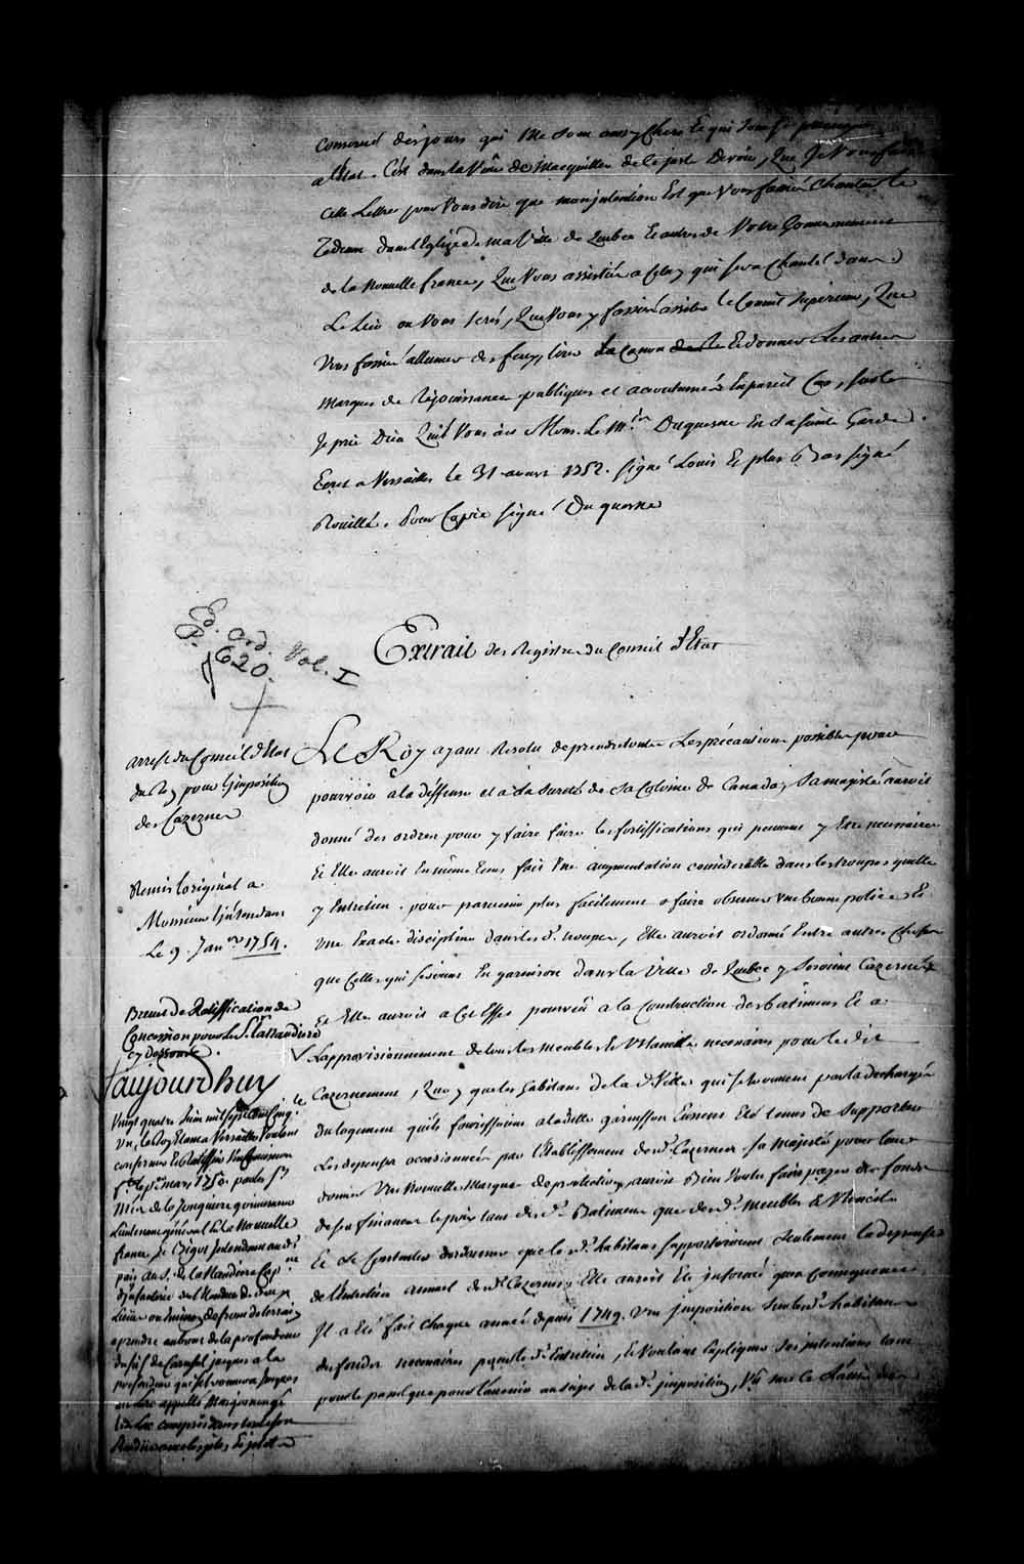 conservé des jours qui me sont aussy Chers Et qui sont sy
a l'Etat. C'est dans la Vüe de m'acquitter de ce juste Devoir, Que Je Vous fais
cette Lettre pour Vous dire que mon intention Est que Vous fassiés Chanter le
Tedeum dans l'Eglise de ma Ville de Quebec Et autres de Votre Gouvernement
de la Nouvelle france, Que Vous assistiés a Celuy qui sera Chanté dans
Le Lieu ou Vous serés, Que Vous y fassiés assister le Conseil Superieur, Que
Vous fassiés allumer des feux, tirer Le Canon Et donner Les autres
Marques de Rejouissance publiques et accoutumés En pareil Cas, sur ce
Je prie Dieu Qu'il Vous ait Mons. Le M.is Duquesne En sa sainte Garde.
Ecrit a Versailles le 31 aoust 1752. signé Louis Et plus bas signé
Rouillé. Pour Copie signé Duquesne
Ed. Ord. Vol. I
P. 620.
Extrait des Registres du Conseil d'Etat
arrest du Conseil d'Etat
du Roy pour l'imposition
des Cazernes
Remis l'original a
Monsieur l'intendant
Le 9. Janv.er 1754.
Le Roy ayant Resolu de prendre toutes Les précautions possibles pour
pourvoir a la déffense et a la sureté de sa Colonie de Canada, sa majesté auroit
donné des ordres pour y faire faire les fortiffications qui peuvent y Etre necessaires
Et Elle auroit En même tems fait Une augmentation considerable dans les troupes qu'elle
y Entretien. pour parvenir plus facilement a faire observer une bonne police Et
une Exacte discipline dans les d. troupes, Elle auroit ordonné Entre autres Choses
que Celles qui seroient En garnison dans la Ville de Quebec y seroient Cazernées
Et Elle auroit a Cet Effet pourvû a la Construction des batimens Et a
L'approvisionnement de tous les meubles Et Ustancilles necessaires pour le dit
Cazernement, Quoy que les habitans de la d. Ville qui se trouvent par la dechargés
du logement qu'ils fournissoient a la ditte garnison Eussent Eté tenus de supporter
Les depenses occasionnées par l'Etablissement des d. Cazernes. sa majesté pour leur
donner Une Nouvelle Marque de protection, auroit Bien Voulu faire payer des fonds
de ses finances le prix tant des d. Batimens que des d. meubles & Ustancilles
Et se Contenter d'ordonner que les d. habitans supporteroient seulement la depense
de l'Entretien annuel des d. Cazernes, Elle auroit Eté informée qu'en Consequence
Il a Eté fait chaque année depuis 1749. Une imposition sur les d. habitans
des fonds necessaires pour le d. Entretien, Et Voulant Expliquer ses intentions tant
pour le passé que pour l'avenir au sujet de la d. imposition, Vû sur ce
Brevet de Ratiffication de
Concession pour le S. La Naudiere
cy dessous.
aujourd'huy
Vingt quatre Juin mil sept Cent Cinq.te
Un, Le Roy Etant a Versailles Voulant
confirmer Et Ratiffier Une Concession
mars 1750. par les S.rs
M.is de la Jonquiere gouverneur
Lieutenant général de la Nouvelle
france, Et Bigot Intendant aud.
pais au S. de la Naudiere Cap.ne
d'infanterie de
Lieües ou Environ de front de terrain
a prendre au bout de la profondeur
du fief de Carufel jusques a la
profondeur qui se trouvera jusques
au Lac appellé Masquinongé
led. Lac compris dans